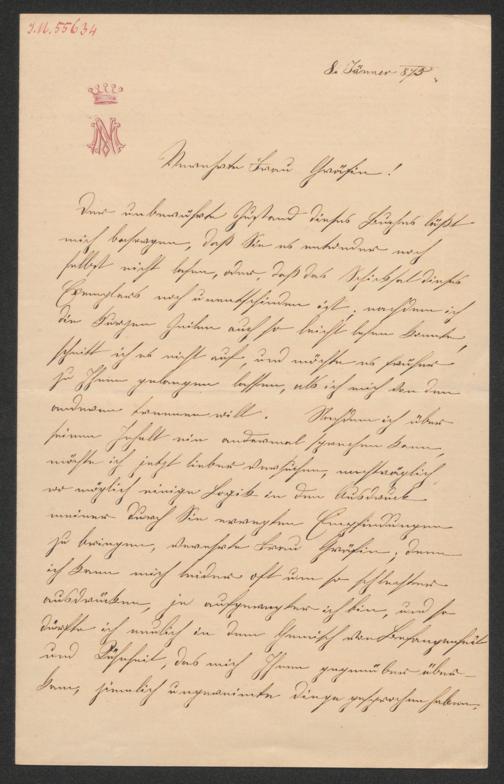 J.N. 55634
8. Jänner 875
Verehrte Frau Gräfin!
Der unberührte Zustand dieses Buches läßt
mich besorgen, daß Sie es entweder noch
selbst nicht lasen, oder, daß das Schicksal dieses
Exemplars noch unentschieden ist; nachdem ich
die kurzen Zeilen auch so leicht lesen konnte,
schnitt ich es nicht auf, und möchte es früher
zu Ihnen gelangen lassen, als ich mich von den
anderen trennen will. Nachdem ich über
seinen Inhalt ein andermal sprechen kann,
möchte ich jetzt lieber versuchen, nachträglich
wo möglich einige Logik in den Ausdruck
meiner durch Sie erregten Empfindungen
zu bringen, verehrte Frau Gräfin; denn
ich kann mich leider oft um so schlechter
ausdrücken, je aufgeregter ich bin, und so
dürfte ich neulich in dem Gemisch von Befangenheit
und Kühnheit, das mich Ihnen gegenüber über-
kam, ziemlich ungereimte Dinge gesprochen haben.